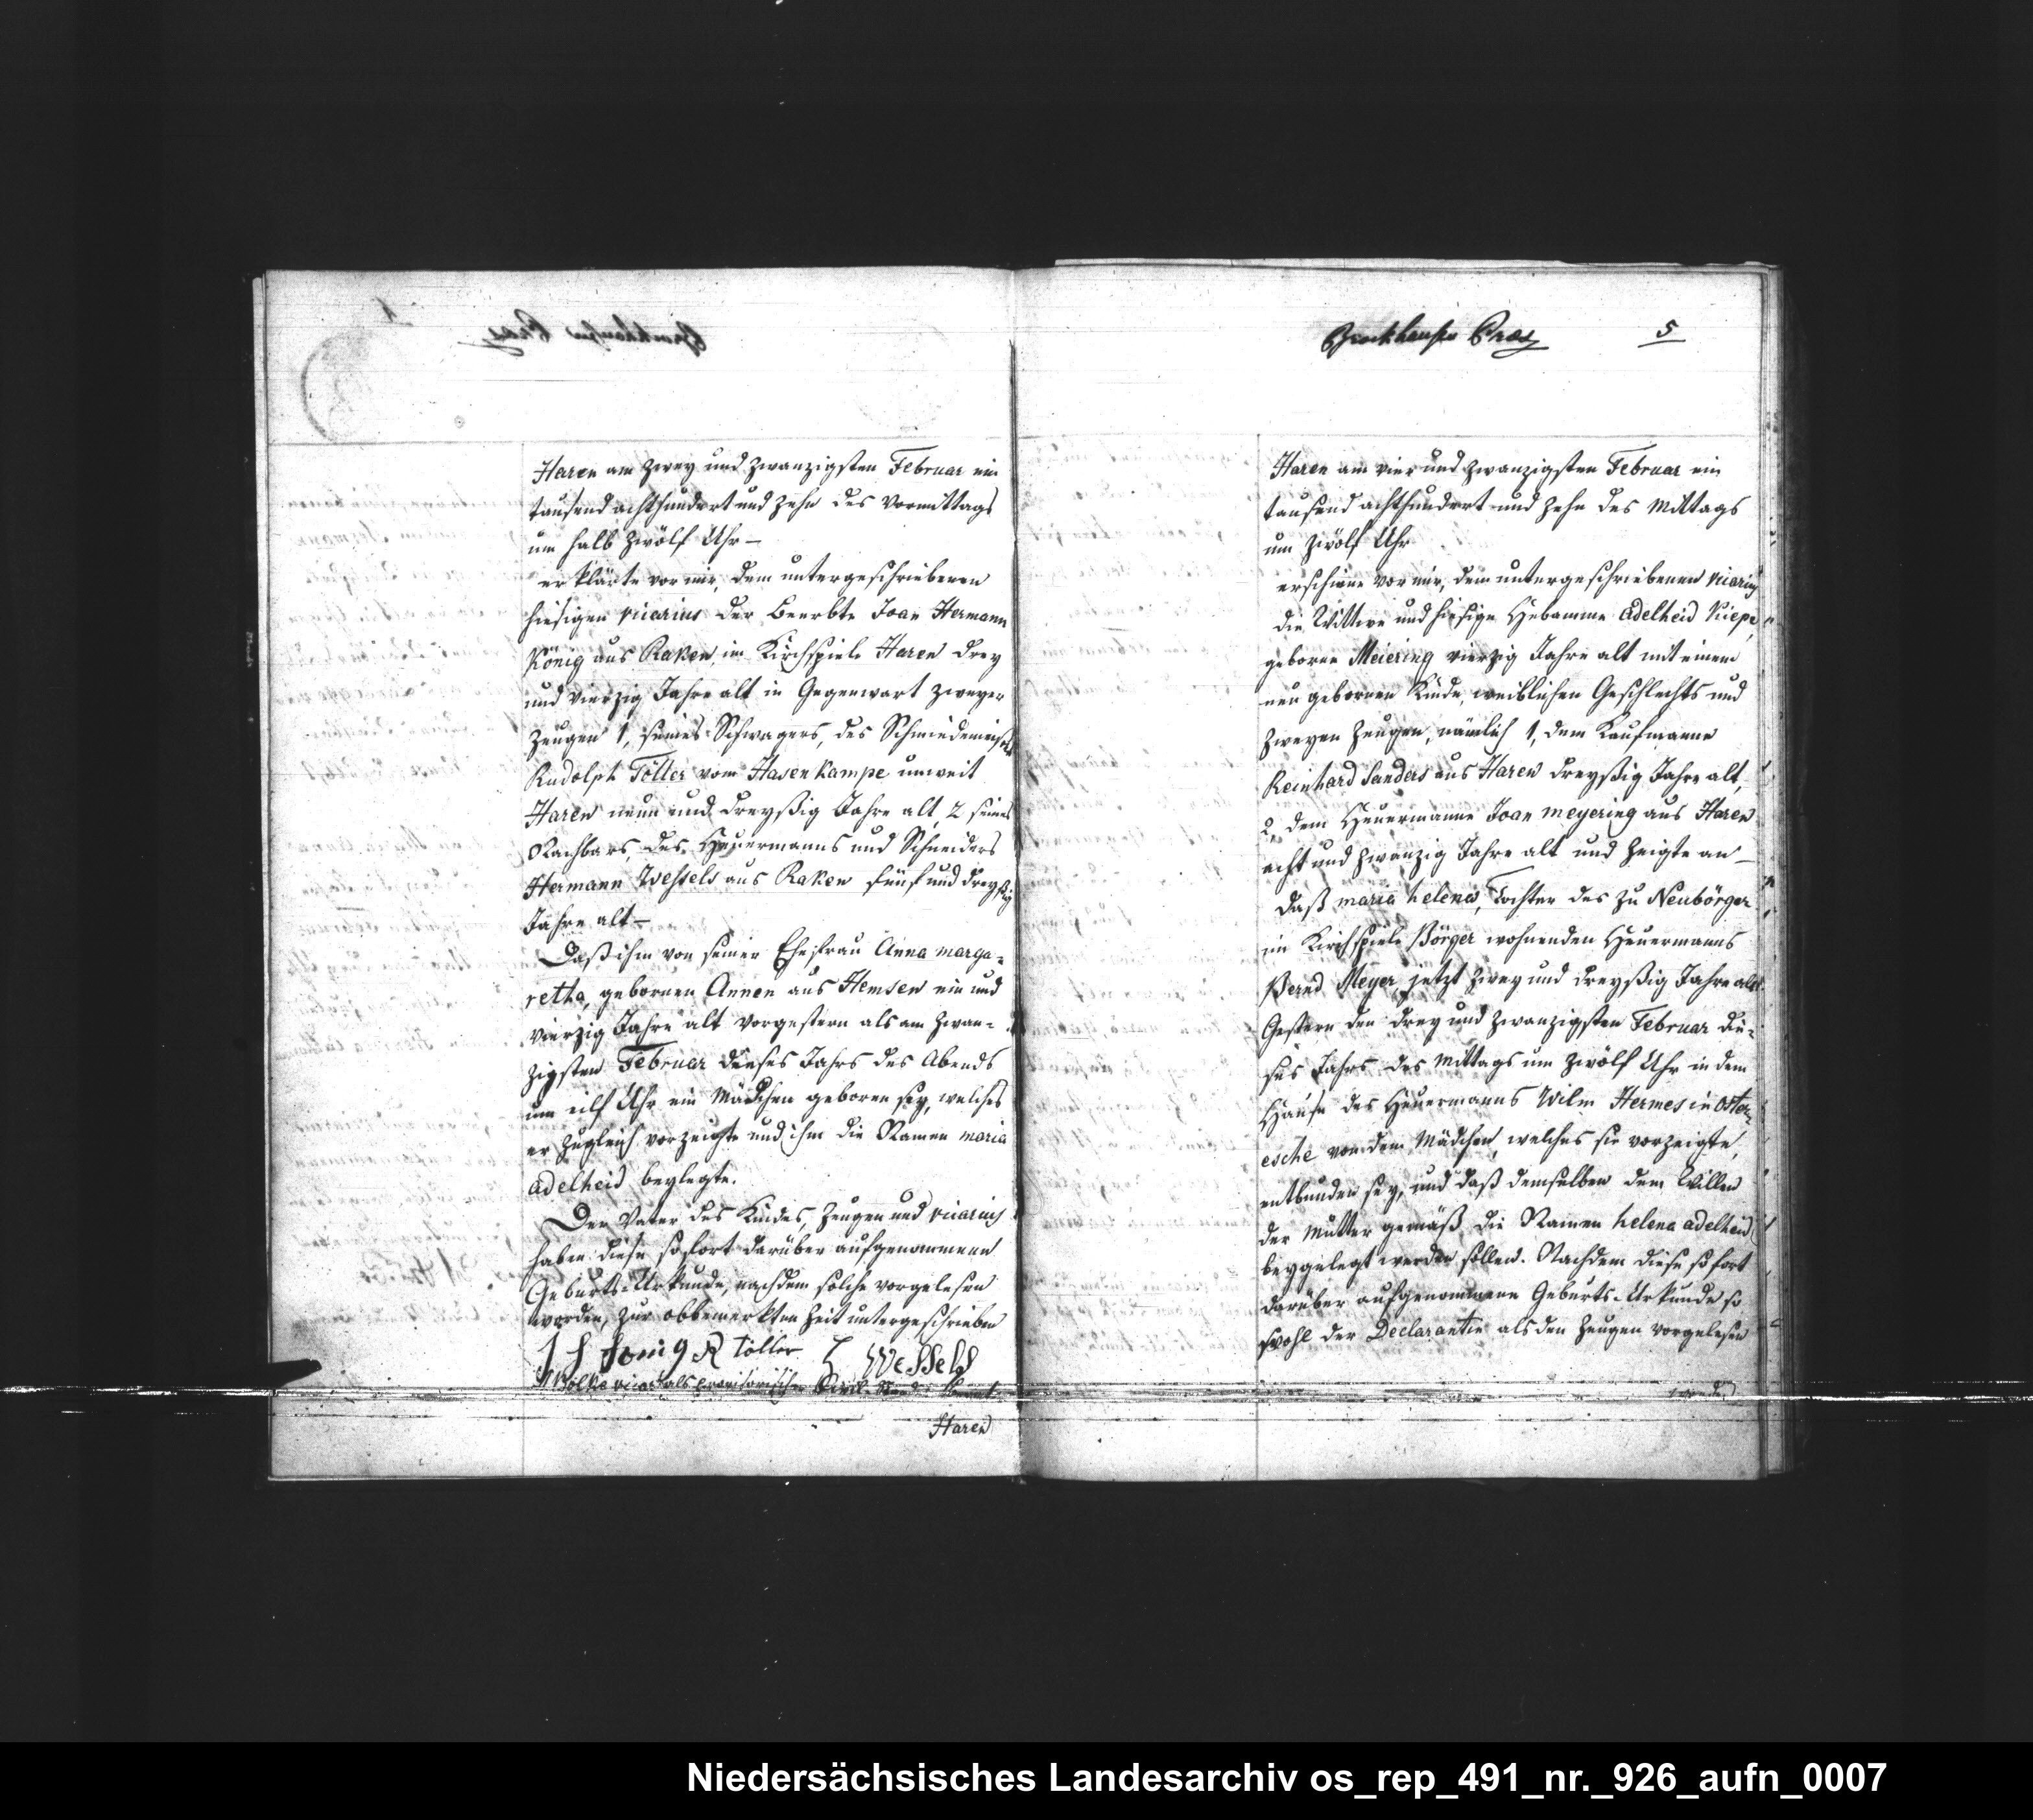 Haren am zwey und zwanzigsten Februar ein
tausend achthundert und zehn des Vormittags
um halb zwölf Uhr –
erklärte vor mir, dem untergeschriebenen
hiesigen vicarius der Beerbte Joan Hermann
König aus Raken im Kirchspiele Haren drey
und vierzig Jahre alt in Gegenwart zweyer
Zeugen 1, seines Schwagers, des Schmiedemeisters
Rudolph Töller vom Hasenkampe unweit
Haren neun und dreyßig Jahre alt, 2 seines
Nachbars, des Heuermanns und Schneiders
Hermann Wessels aus Raken fünf und dreyßig
Jahre alt –
Daß ihm von seiner Ehefrau Anna marga=
retha, gebornen Annen aus Hemsen ein und
vierzig Jahre alt vorgestern als am zwan=
zigsten Februar dieses Jahrs des Abends
um eilf Uhr ein Mädchen geboren sey, welches
er zugleich vorzeigte und ihm die Namen maria
adelheid beylegte.
Der Vater des Kindes, Zeugen und vicarius
haben diese sofort darüber aufgenommene
Geburts=Urkunde, nachdem solche vorgelesen
worden, zur obbemerkten Zeit untergeschrieben
J H König R Töller H Wessels
Bölke vicar als provisorischer Civil
Haren
Brockhausen Praes 5
Haren am vier und zwanzigsten Februar ein
tausend achthundert und zehn des Mittags
um zwölf Uhr
erschiene vor mir, dem untergeschriebenen vicarius
die Wittwe und hiesige Hebamme adelheid Kiepe,
geborne Meiering vierzig Jahre alt mit einem
neu gebornen Kinde, weiblichen Geschlechts und
zweyen Zeugen, nämlich 1, dem Kaufmanne
Reinhard Sanders aus Haren dreyßig Jahre alt,
2, dem Heuermanne Joan meyering aus Haren
acht und zwanzig Jahre alt und zeigte an –
Daß maria helena, Tochter des zu Neubörger
im Kirchspiele Börger wohnenden Heuermanns
Bernd Meyer, jetzt zwey und dreyßig Jahre alt
Gestern den drey und zwanzigsten Februar die=
ses Jahrs des Mittags um zwölf Uhr in dem
Hause des Heuermanns Wilm Hermes in Oster=
esche von dem Mädchen, welches sie vorzeigte,
entbunden sey, und daß demselben dem Willen
der Mutter gemäß die Namen helena adelheid
beygelegt werden sollen. Nachdem diese sofort
darüber aufgenommene Geburts=Urkunde so
wohl der Declarantin als den Zeugen vorgelesen
worden
Niedersächsisches Landesarchiv os_rep_491_nr._926_aufn_0007